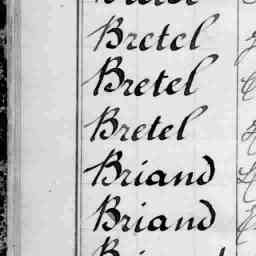 Bretel
Bretel
Bretel
Briand
Briand